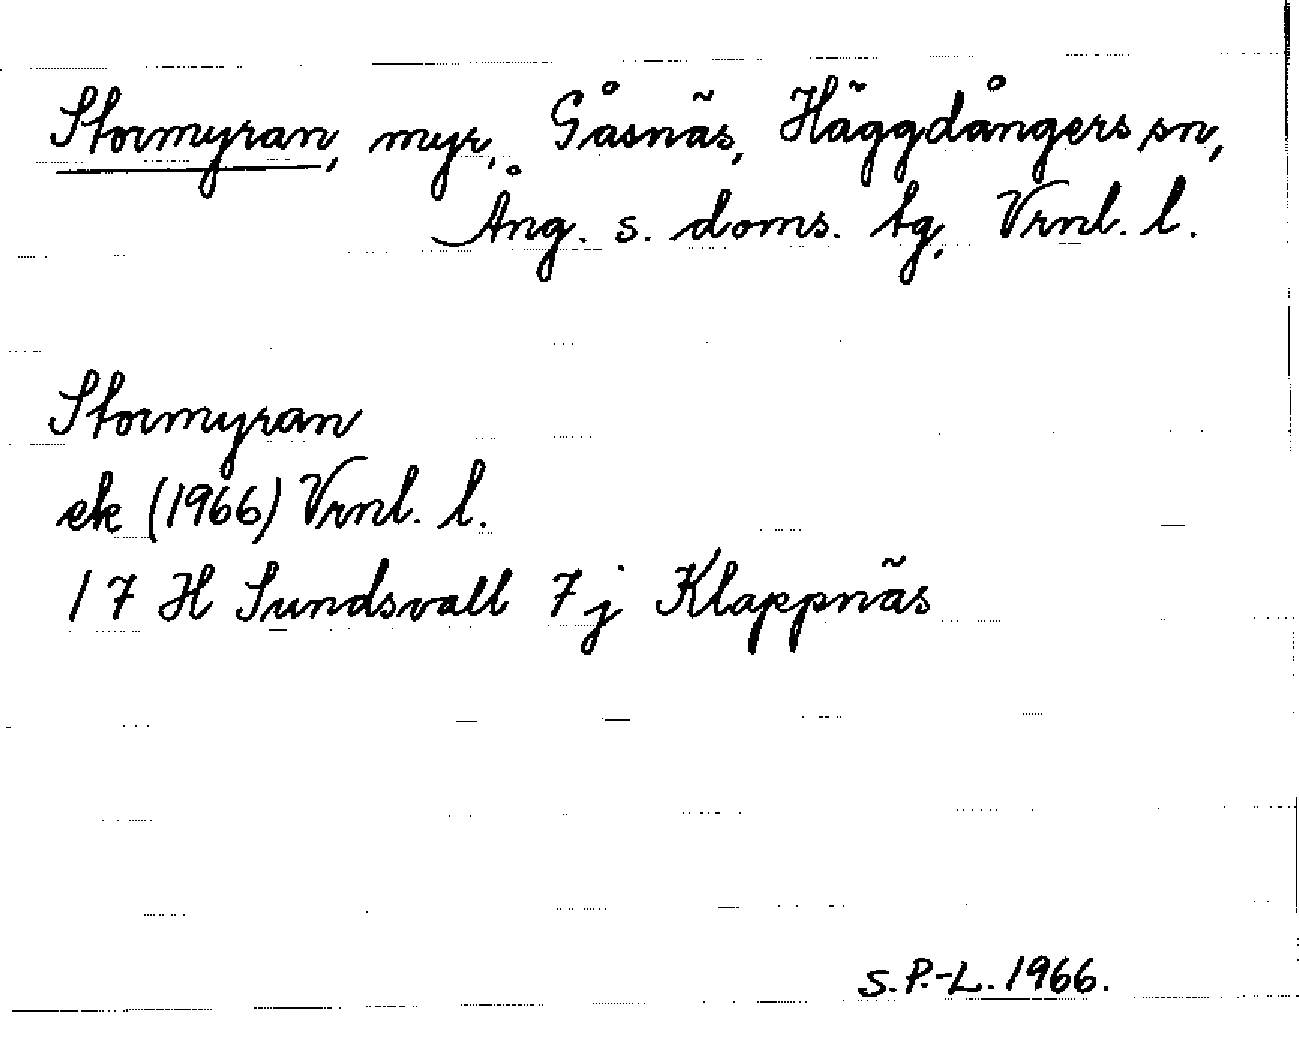 Stormyran, myr, Gåsnäs, Häggdångers sn,
Ång. s. doms. tg, Vrnl. l.
Stormyran
ek (1966) Vrnl. l.
17 H Sundsvall 7j Klappnäs
S.P.-L. 1966.